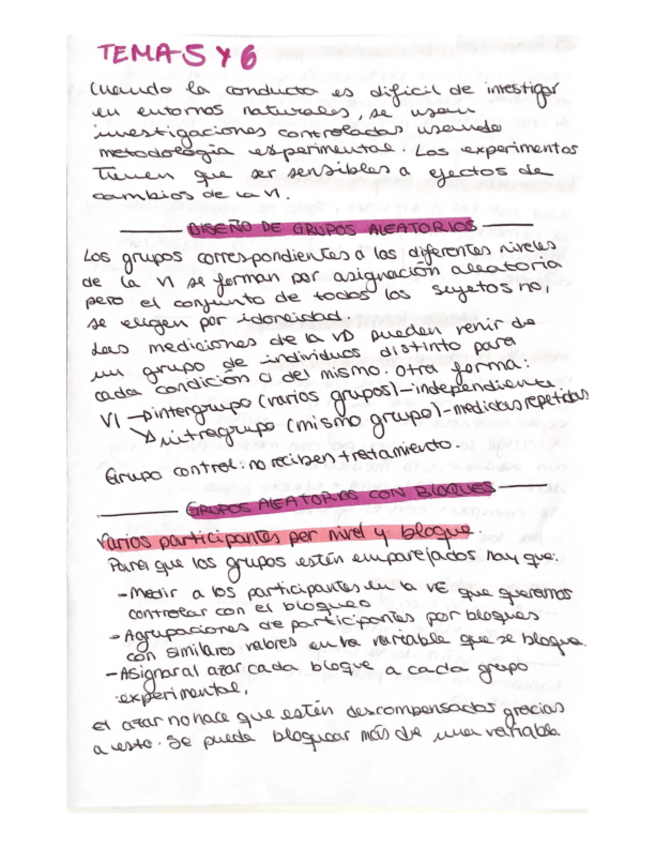 TEMA 5 Y 6
Cuando la conducta es dificil de investigar
en entornos naturales, se usan
investigaciones controladas usando
metodología experimental. Los experimentos
tienen que ser sensibles a efectos de
cambios de la VI.
DISEÑO DE GRUPOS ALEATORIOS
Los grupos correspondientes a los diferentes niveles
de la VI se forman por asignación aleatoria
pero el conjunto de todos los sujetos no,
se eligen por idoneidad.
Las mediciones de la VD pueden venir de
un grupo de individuos distinto para
cada condición o del mismo. Otra forma:
VI → intergrupo (varios grupos) - independiente
→ intragrupo (mismo grupo) - medidas repetidas
Grupo control: no reciben tratamiento.
GRUPOS ALEATORIOS CON BLOQUES
Varios participantes por nivel y bloque.
Para que los grupos estén emparejados hay que:
- Medir a los participantes en la VE que queremos
controlar con el bloqueo
- Agrupaciones de participantes por bloques
con similares valores en la variable que se bloquea.
- Asignar al azar cada bloque a cada grupo
experimental,
el azar no hace que estén descompensados gracias
a esto. Se puede bloquear más de una variable